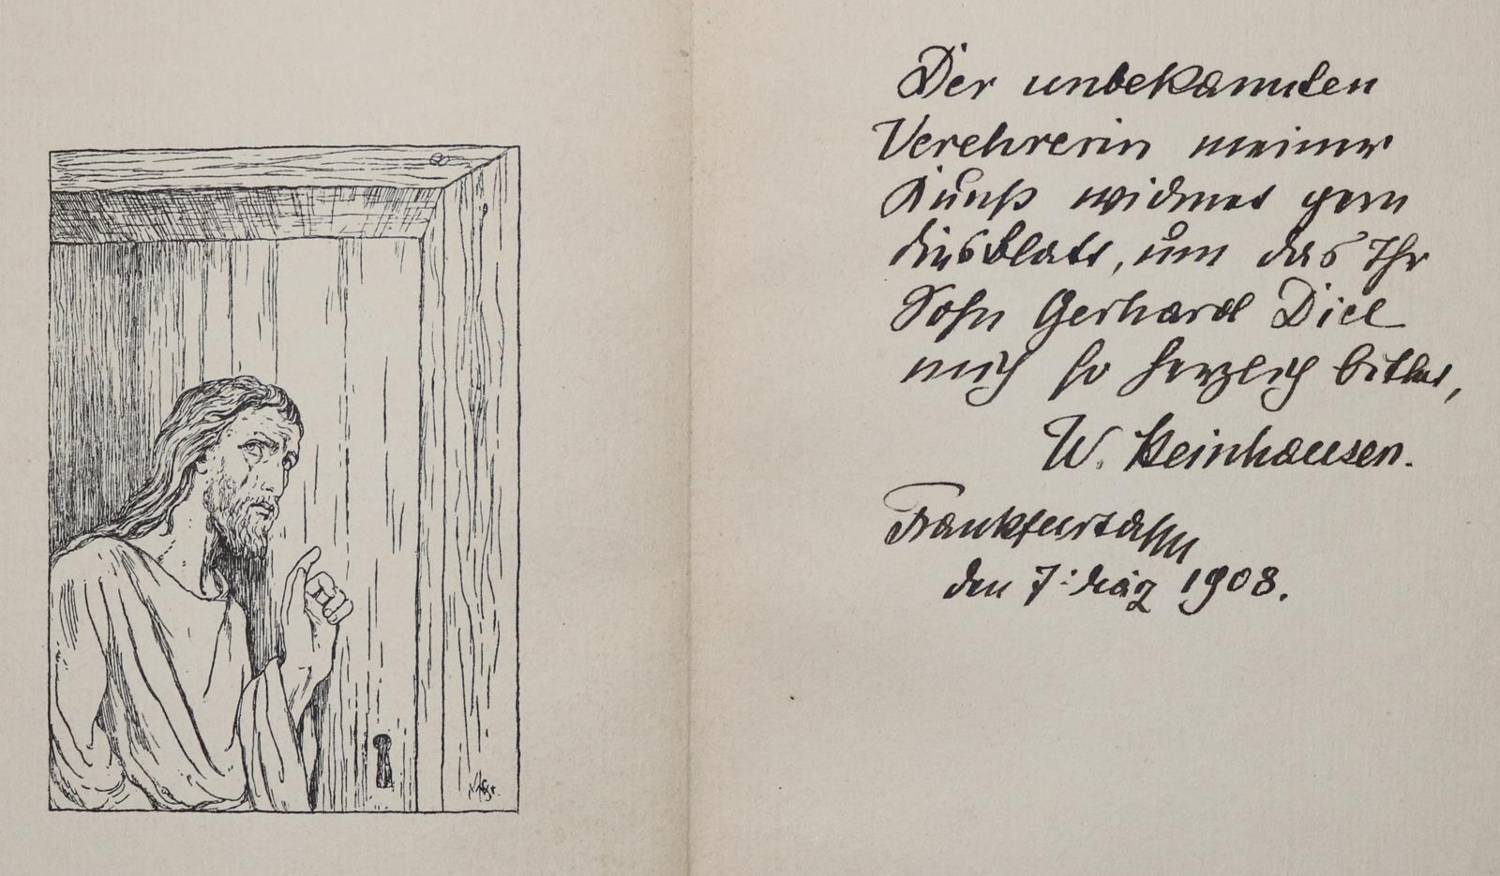 Der unbekannten
Verehrerin meiner
Kunst widmet gern
dies Blatt, um das Ihr
Sohn Gerhard Diel
mich so herzlich bittet,
W. Steinhausen.
Frankfurt a/M
den 7. März 1908.